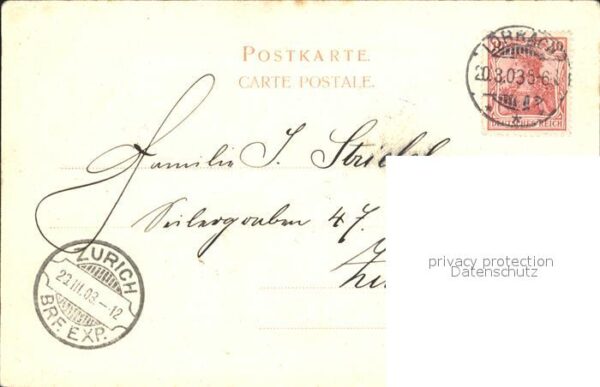 POSTKARTE.
CARTE POSTALE.
LÖRRACH
20.3.03 5-6
10
DEUTSCHES REICH
Familie J. Strickl
Seilergraben 47.
privacy protection
Datenschutz
ZÜRICH
22.III.03.–12
BRF. EXP.